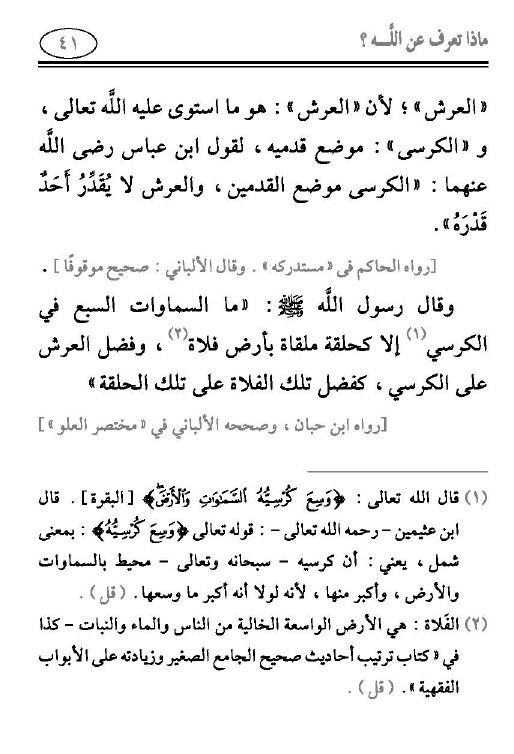 ماذا تعرف عن اللَّـه ؟
٤١
«العرش» ؛ لأن «العرش» : هو ما استوى عليه اللَّه تعالى ،
و «الكرسى» : موضع قدميه ، لقول ابن عباس رضى اللَّه
عنهما : «الكرسى موضع القدمين ، والعرش لا يُقَدِّرُ أَحَدٌ
قَدْرَهُ» .
[رواه الحاكم فى «مستدركه» . وقال الألباني : صحيح موقوفًا ] .
وقال رسول اللَّه ﷺ : «ما السماوات السبع في
الكرسي(١) إلا كحلقة ملقاة بأرض فلاة(٢) ، وفضل العرش
على الكرسي ، كفضل تلك الفلاة على تلك الحلقة»
[رواه ابن حبان ، وصححه الألباني في «مختصر العلو»]
(١) قال الله تعالى : ﴿وَسِعَ كُرْسِيُّهُ السَّمَاوَاتِ وَالْأَرْضَ﴾ [البقرة] . قال
ابن عثيمين – رحمه الله تعالى – : قوله تعالى ﴿وَسِعَ كُرْسِيُّهُ﴾ : بمعنى
شمل ، يعني : أن كرسيه – سبحانه وتعالى – محيط بالسماوات
والأرض ، وأكبر منها ، لأنه لولا أنه أكبر ما وسعها. ( قل ) .
(٢) الفَلاة : هي الأرض الواسعة الخالية من الناس والماء والنبات – كذا
في « كتاب ترتيب أحاديث صحيح الجامع الصغير وزيادته على الأبواب
الفقهية » . ( قل ) .